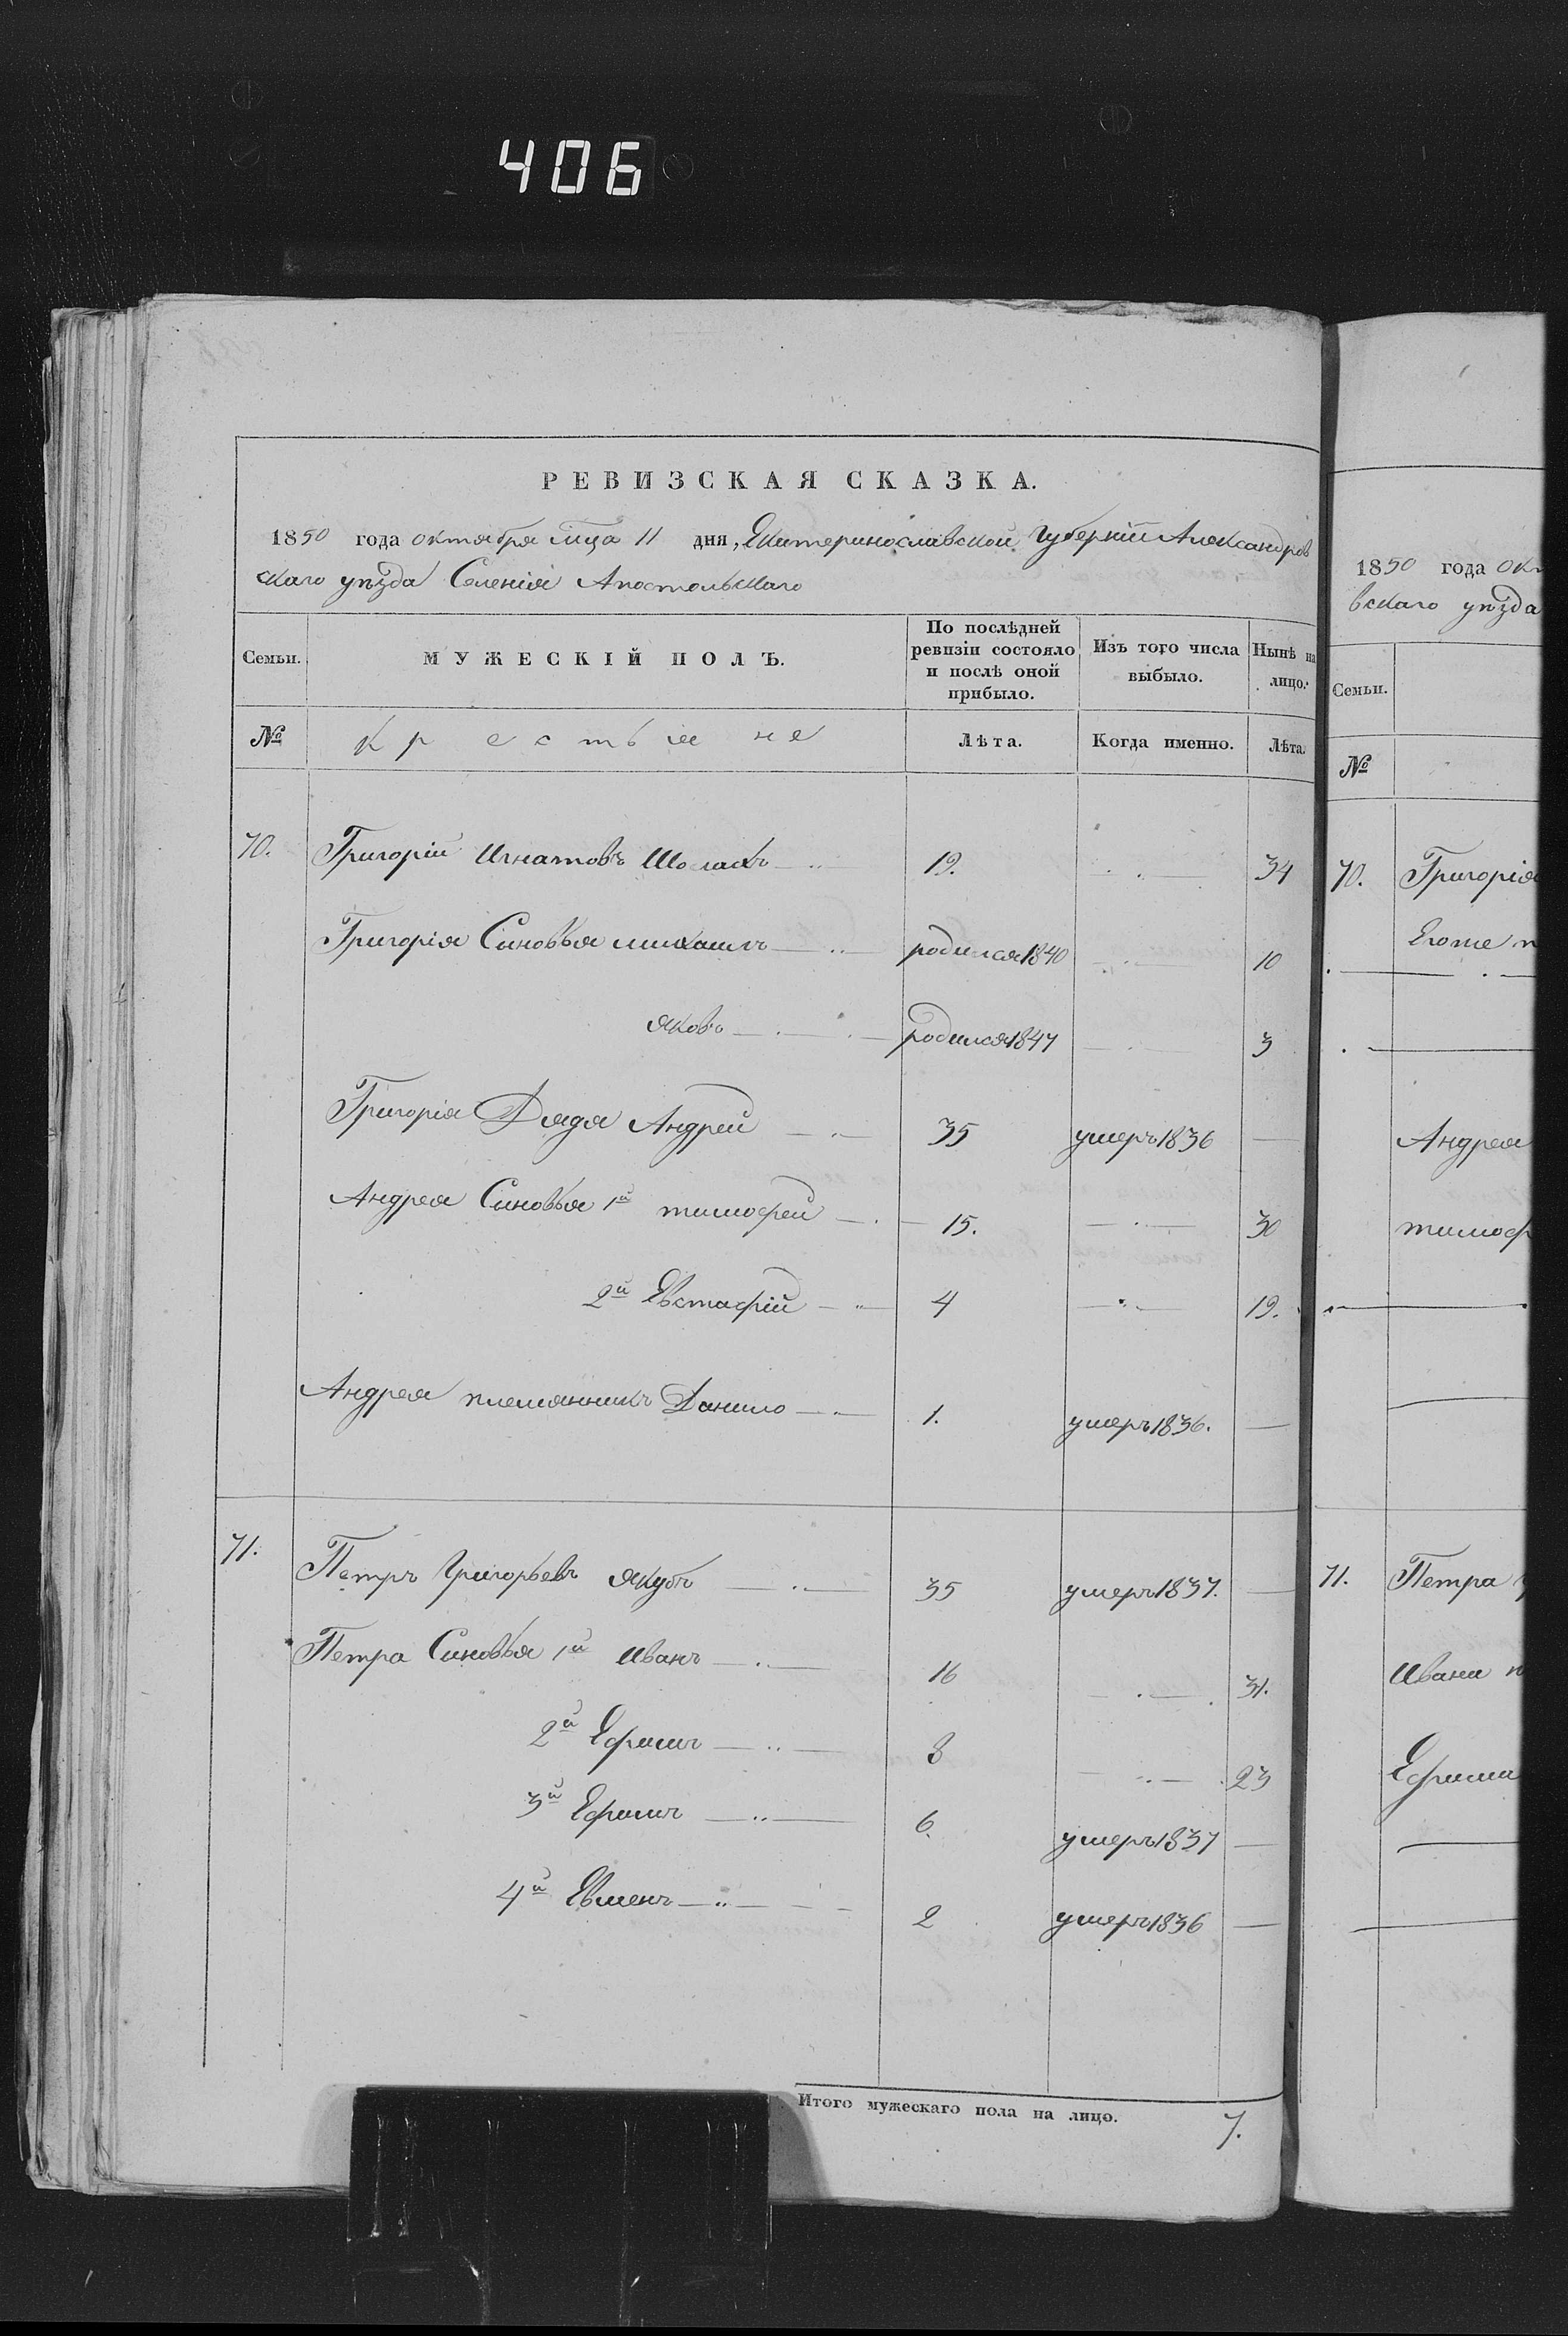 406
РЕВИЗСКАЯ СКАЗКА.
1850 года октября мца 11 дня, Екатеринославской Губернии Александров
скаго уѣзда Селенія Апостольскаго
Семьи. МУЖЕСКІЙ ПОЛЪ. По послѣдней ревизіи состояло и послѣ оной прибыло. Изъ того числа выбыло. Нынѣ на лицо.
№ крестьяне Лѣта. Когда именно. Лѣта.
70. Григорій Игнатовъ 19. 34
Григорія Синовья михаилъ родился 1840 10
яковъ родился 1847 3
Григорія Дядя Андрей 35 умеръ 1836
Андрея Синовья 1й тимофей 15. 30
2й Евстафій 4 19.
Андрея племянникъ Данило 1. умеръ 1836.
71. Петръ Григорьевъ Якубъ 35 умеръ 1837.
Петра Синовья 1й Иванъ 16 31.
2й Ефимъ 8 23
3й Ефимъ 6. умеръ 1837
4й Евменъ 2 умеръ 1836
Итого мужескаго пола на лицо. 7.
1850 года окт
вскаго уѣзда
Семьи.
№
70. Григорія
Егоже
Андрея
тимоф
71. Петра
Ивана
Ефима